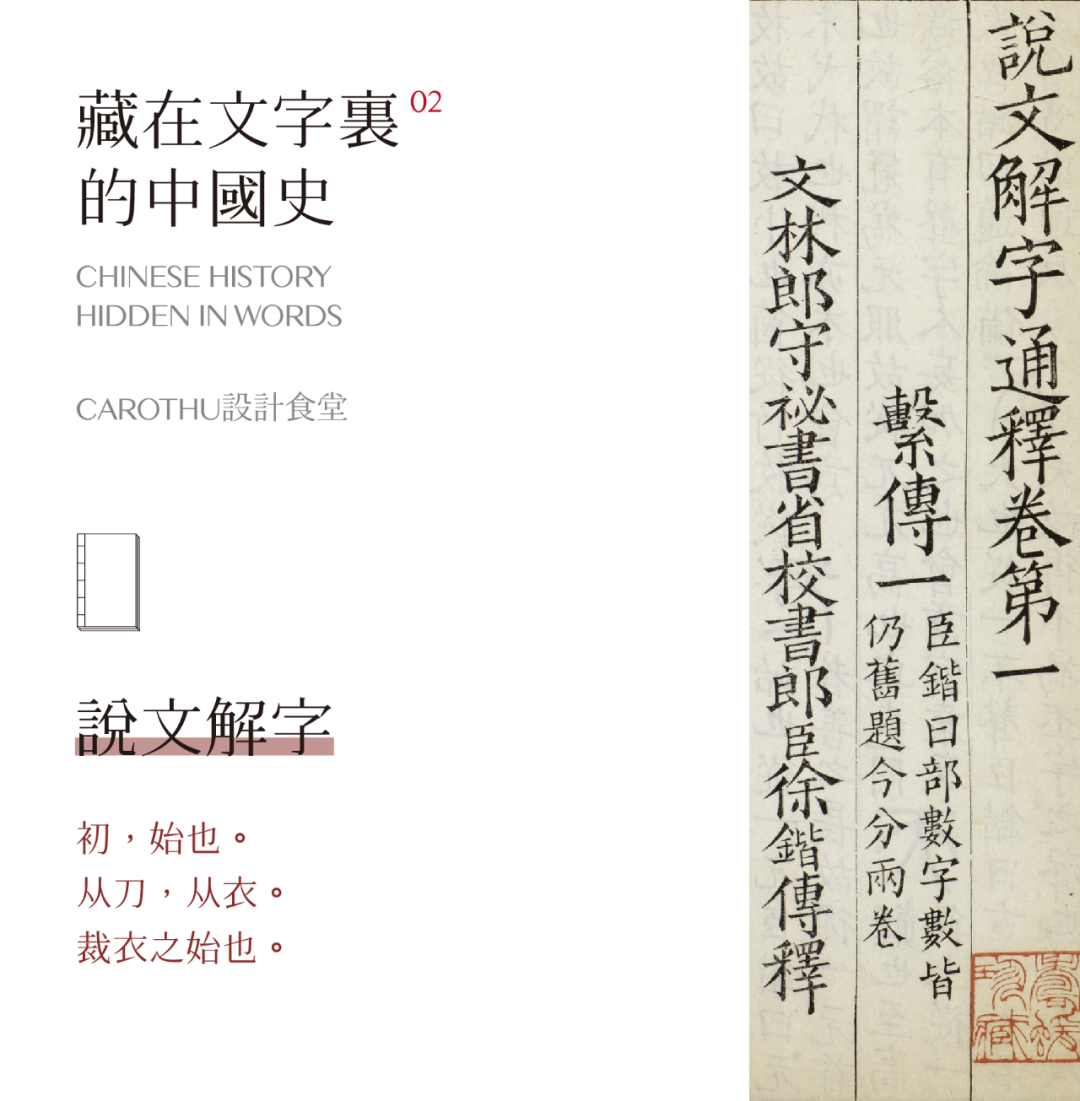 藏在文字裏 02
的中國史
CHINESE HISTORY
HIDDEN IN WORDS
CAROTHU設計食堂
說文解字
初，始也。
从刀，从衣。
裁衣之始也。
說文解字通釋卷第一
繫傳一
臣鍇曰部數字數皆
仍舊題今分兩卷
文林郎守祕書省校書郎臣徐鍇傳釋